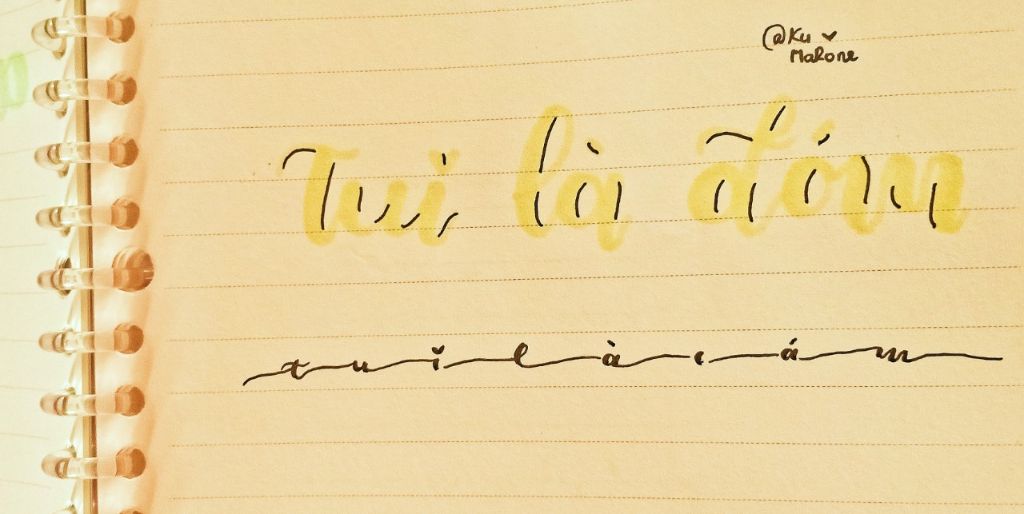 @Ku ♥
MaRone
Tui là đóm
tui là cám